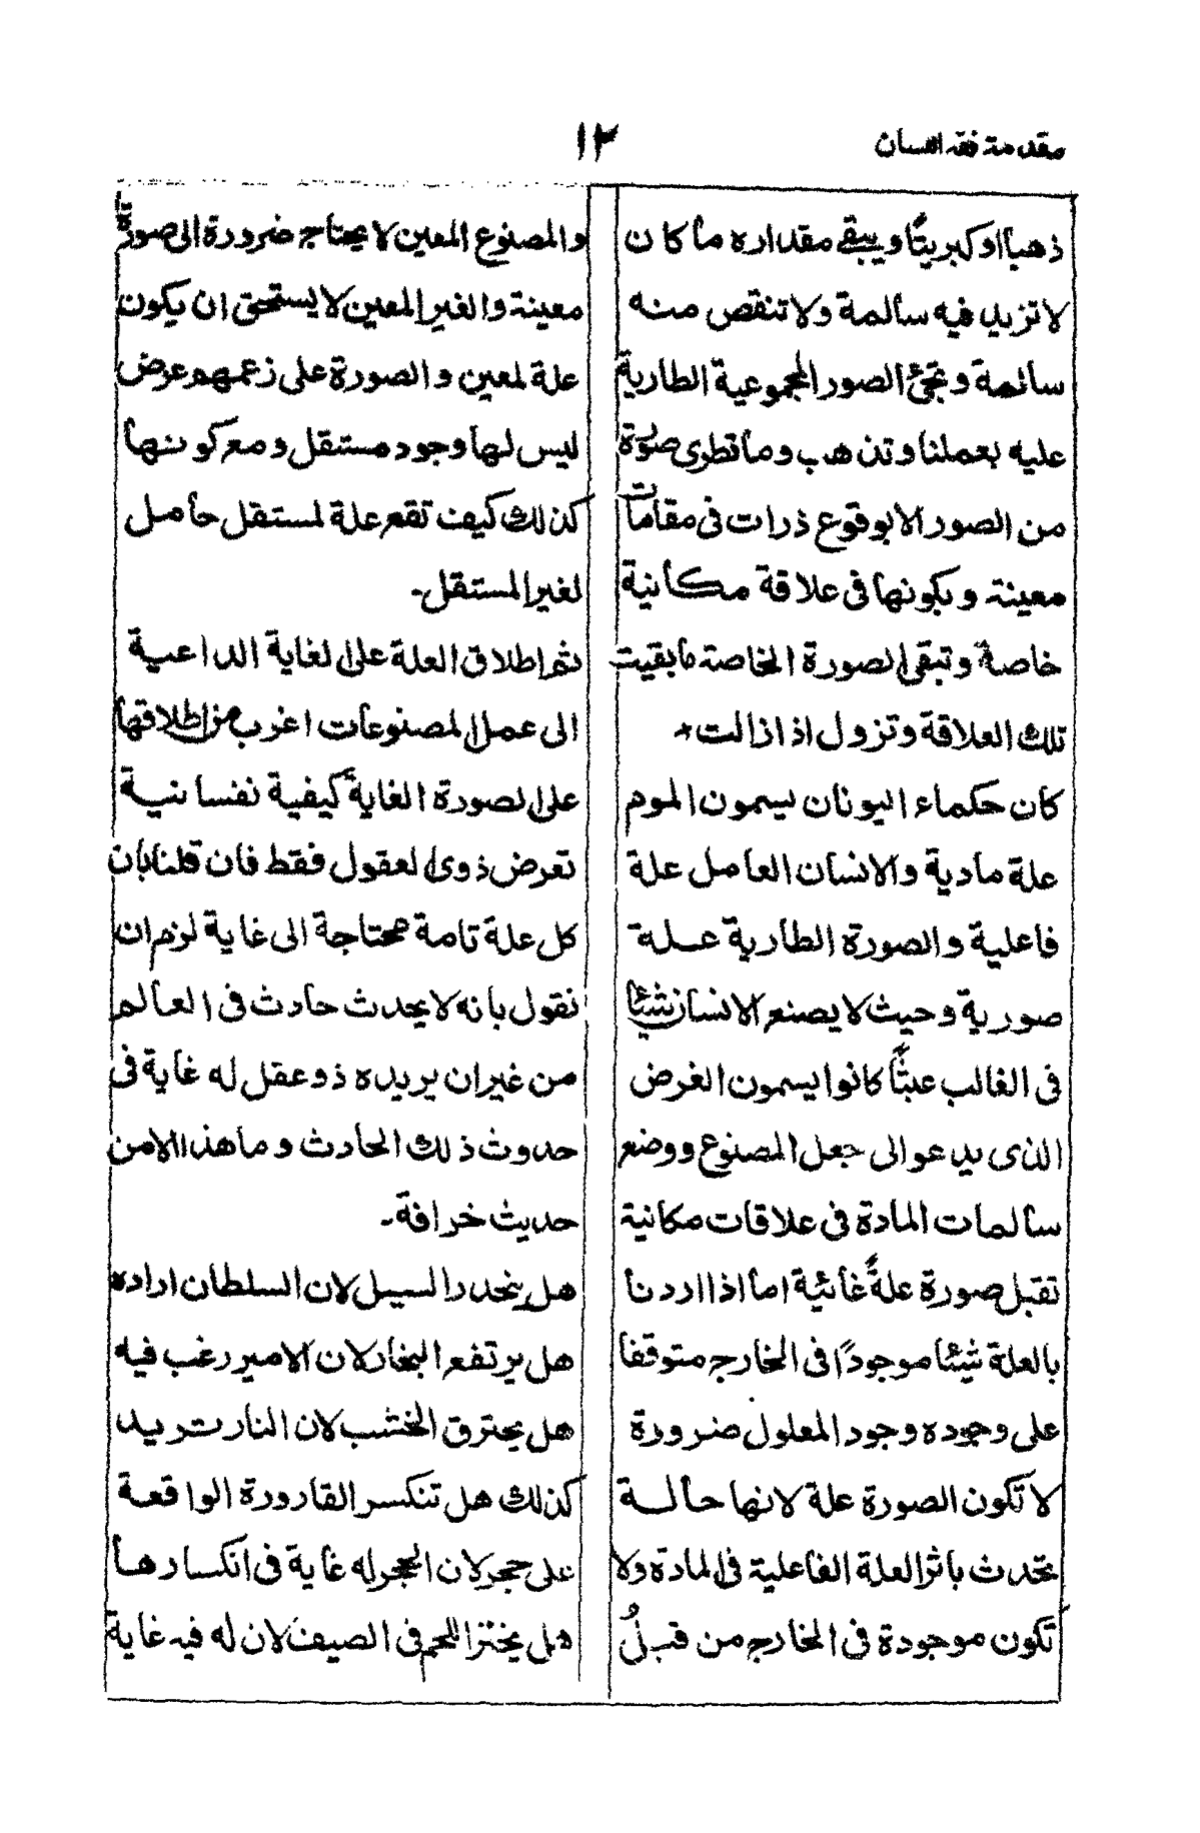 مقدمة فقه اللسان
١٢
ذهبا او كبريتًا ويبقى مقداره ما كان
لا تزيد فيه سالمة ولا تنقص منه
سائمة وتجئ الصور المجموعية الطارية
عليه بعملنا وتذهب وما تطرى صورة
من الصور الا بوقوع ذرات فى مقامات
معينة وبكونها فى علاقة مكانية
خاصة وتبقى الصورة الخاصة ما بقيت
تلك العلاقة وتزول اذا زالت
كان حكماء اليونان يسمون الموم
علة مادية والانسان العامل علة
فاعلية والصورة الطارية علة
صورية وحيث لا يصنع الانسان شيئا
فى الغالب عبثًا كانوا يسمون الغرض
الذى يدعو الى جعل المصنوع ووضع
سالمات المادة فى علاقات مكانية
تقبل صورة علةً غائية اما اذا اردنا
بالعلة شيئا موجودًا فى الخارج متوقفا
على وجوده وجود المعلول ضرورة
لا تكون الصورة علة لانها حالة
تحدث باثر العلة الفاعلية فى المادة ولا
تكون موجودة فى الخارج من قبلُ
والمصنوع المعين لا يحتاج ضرورة الى صورة
معينة والغير المعين لا يستحق ان يكون
علة لمعين والصورة على زعمهم عرض
ليس لها وجود مستقل ومع كونها
كذلك كيف تقع علة لمستقل حامل
لغير المستقل-
ثم اطلاق العلة على الغاية الداعية
الى عمل المصنوعات اغرب من اطلاقها
على الصورة الغاية كيفية نفسانية
تعرض ذوى العقول فقط فان قلنا بان
كل علة تامة محتاجة الى غاية لزم ان
نقول بانه لا يحدث حادث فى العالم
من غير ان يريده ذو عقل له غاية فى
حدوث ذلك الحادث وما هذا الا من
حديث خرافة-
هل ينحدر السيل لان السلطان اراده
هل يرتفع البخار لان الامير رغب فيه
هل يحترق الخشب لان النار تريد
كذلك هل تنكسر القارورة الواقعة
على حجر لان الحجر له غاية فى انكسارها
هل يخنز اللحم فى الصيف لان له فيه غاية